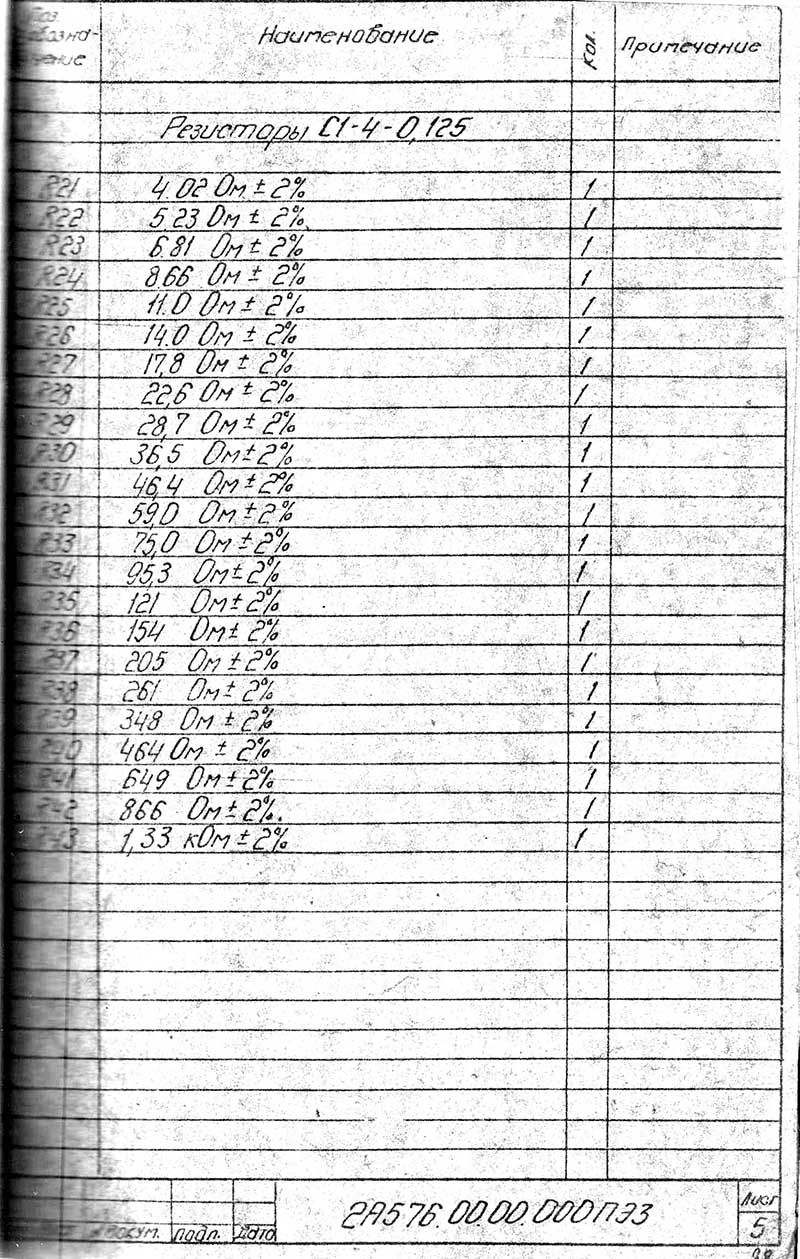 Поз. обозна-чение Наименование Кол. Примечание
Резисторы С1-4-0,125
R21 4.02 Ом ± 2% 1
R22 5.23 Ом ± 2% 1
R23 6.81 Ом ± 2% 1
R24 8.66 Ом ± 2% 1
R25 11.0 Ом ± 2% 1
R26 14.0 Ом ± 2% 1
R27 17,8 Ом ± 2% 1
R28 22,6 Ом ± 2% 1
R29 28,7 Ом ± 2% 1
R30 36,5 Ом ± 2% 1
R31 46,4 Ом ± 2% 1
R32 59,0 Ом ± 2% 1
R33 75,0 Ом ± 2% 1
R34 95,3 Ом ± 2% 1
R35 121 Ом ± 2% 1
R36 154 Ом ± 2% 1
R37 205 Ом ± 2% 1
R38 261 Ом ± 2% 1
R39 348 Ом ± 2% 1
R40 464 Ом ± 2% 1
R41 649 Ом ± 2% 1
R42 866 Ом ± 2%. 1
R43 1,33 кОм ± 2% 1
докум. подп. Дата 2А576.00.00.000ПЭ3 Лист 5